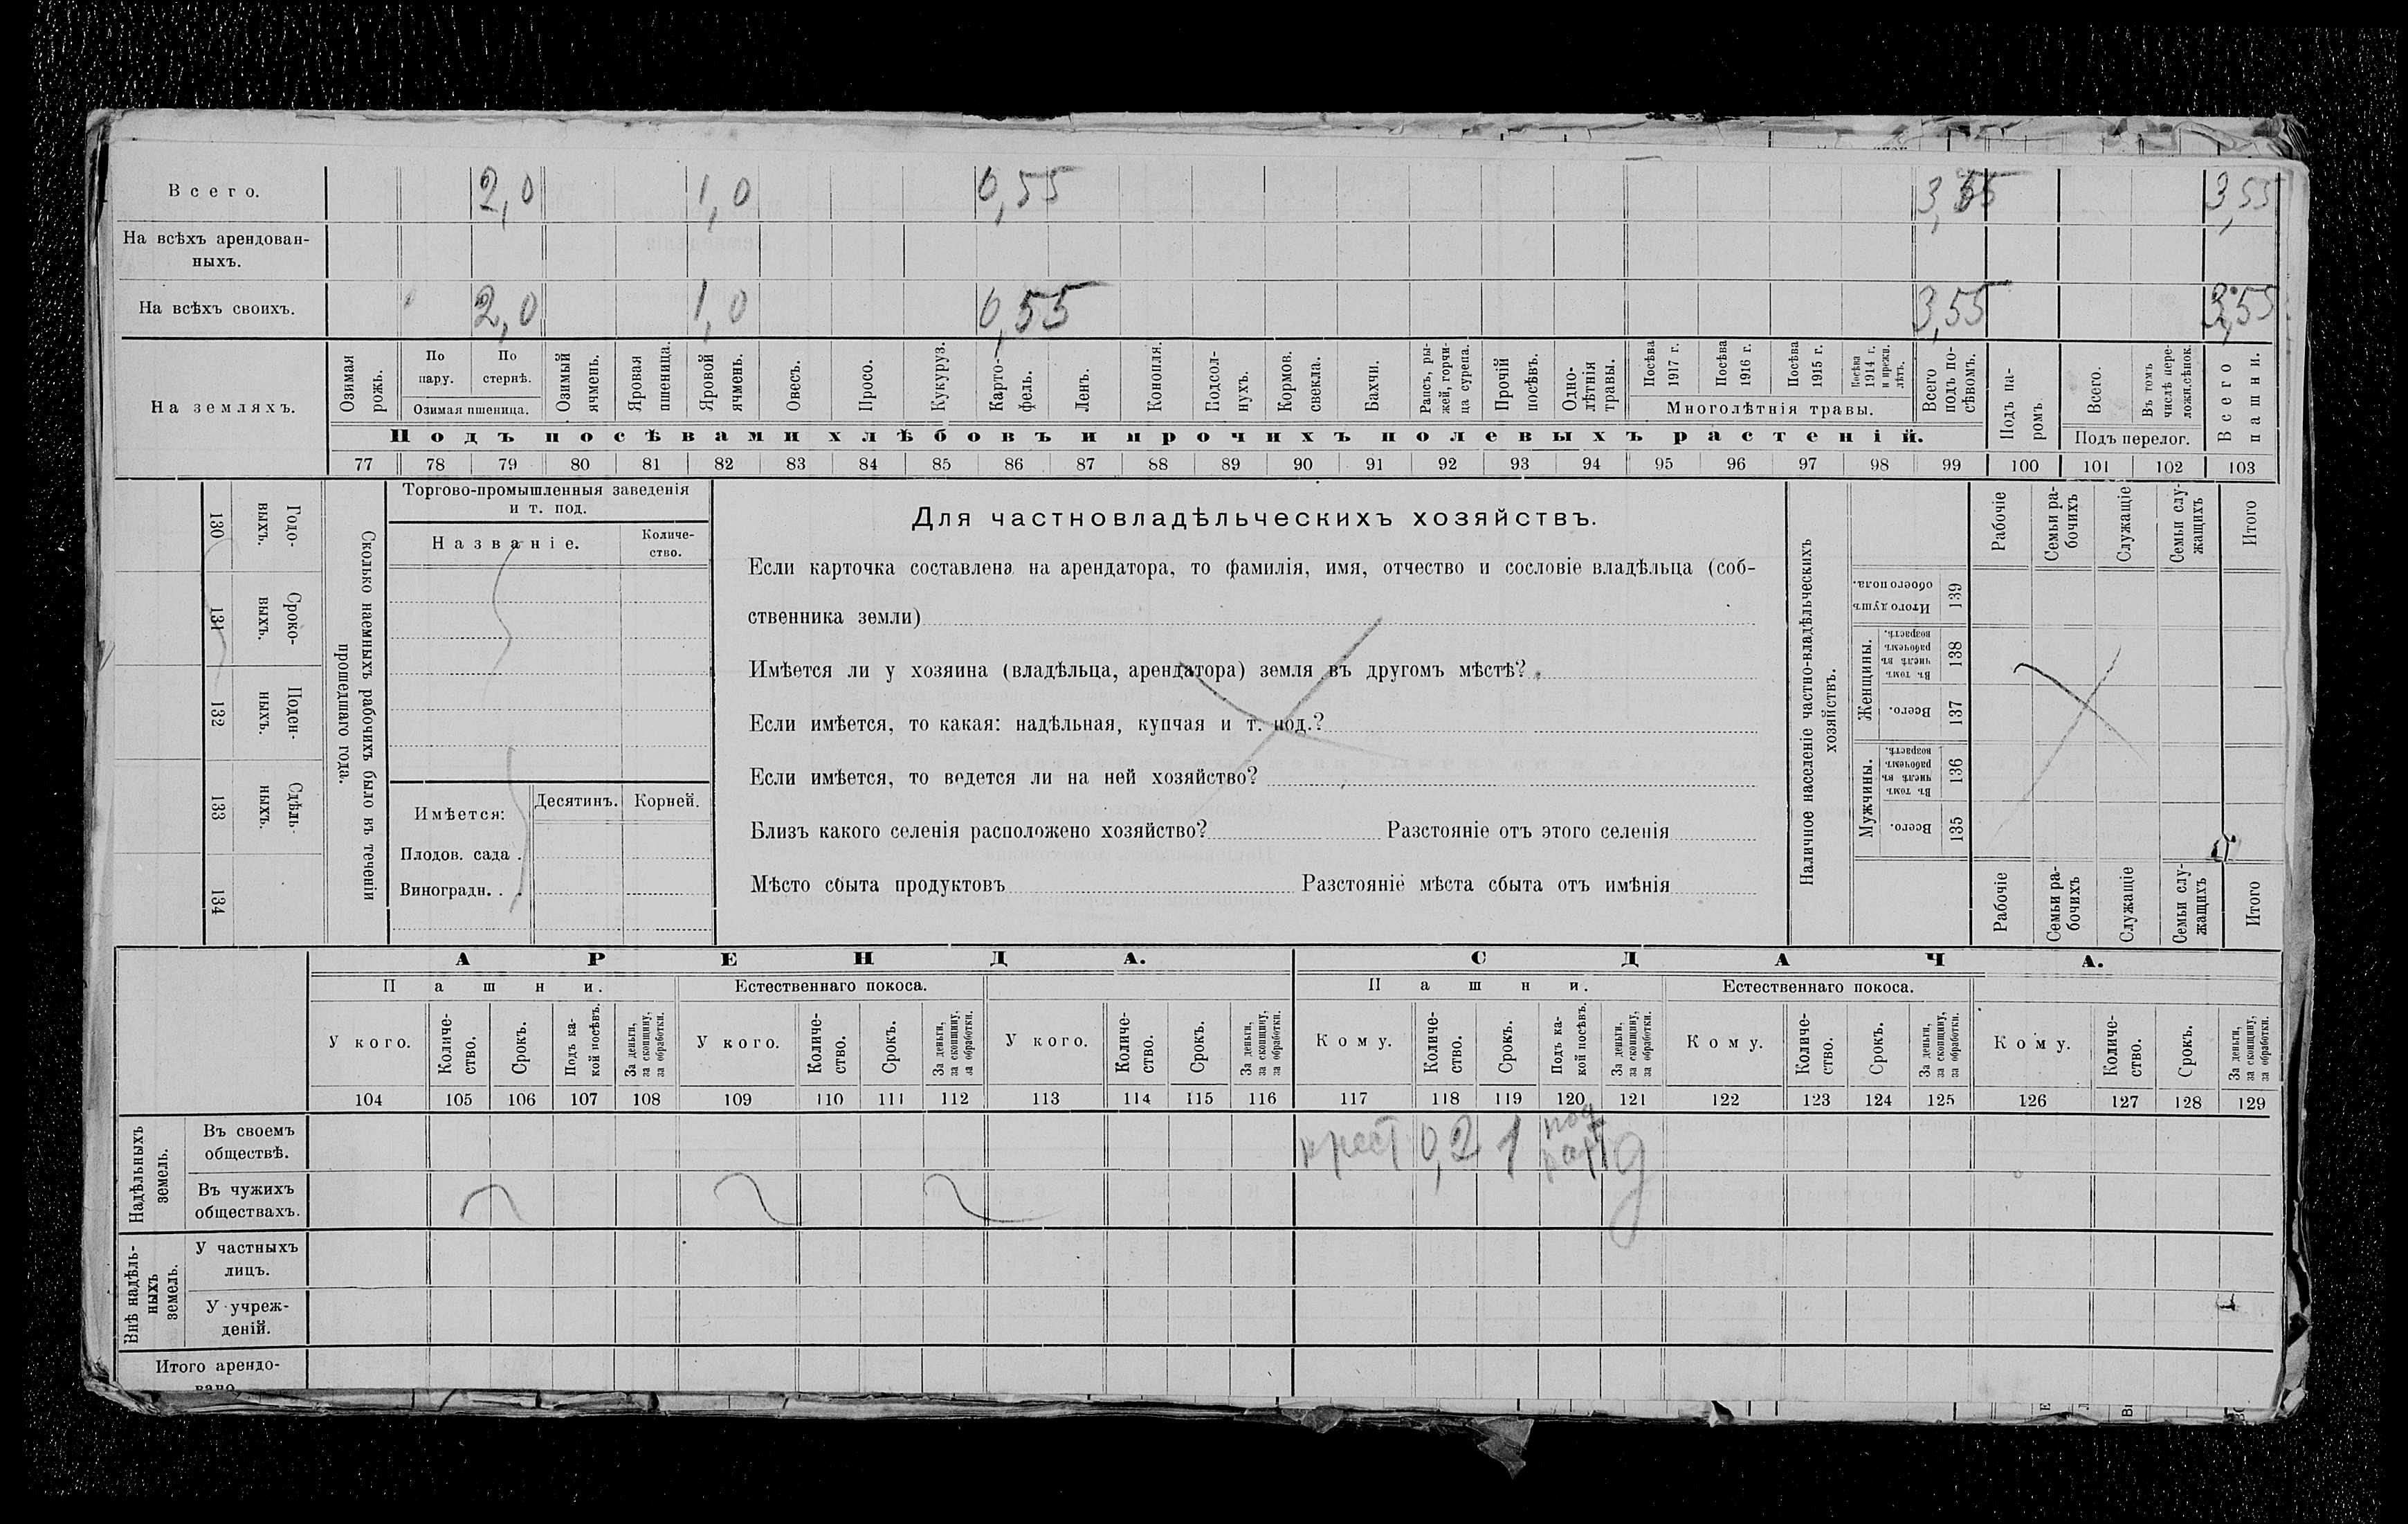 Всего. 2,0 1,0 0,55 3,55 3,55
На всѣхъ арендован-
ныхъ.
На всѣхъ своихъ. 2,0 1,0 0,55 3,55 3,55
На земляхъ.
Озимая рожь.
По пару.
По стернѣ.
Озимая пшеница.
Озимый ячмень.
Яровая пшеница.
Яровой ячмень.
Овесъ.
Просо.
Кукуруз.
Карто-
фель.
Ленъ.
Конопля.
Подсол-
нухъ.
Кормов. свекла.
Бахчи.
Рапсъ, ры-
жей, горчи-
ца сурепа.
Прочій посѣвъ.
Одно-
лѣтнія травы.
Посѣва 1917 г.
Посѣва 1916 г.
Посѣва 1915 г.
Посѣва 1914 г. и прежн. лѣтъ.
Многолѣтнія травы.
Всего подъ по-
сѣвомъ.
Подъ па-
ромъ.
Всего.
Въ томъ числѣ пере-
лож.сѣнок.
Подъ перелог.
Всего пашни.
Подъ посѣвами хлѣбовъ и прочихъ полевыхъ растеній.
77 78 79 80 81 82 83 84 85 86 87 88 89 90 91 92 93 94 95 96 97 98 99 100 101 102 103
130 Годо-
выхъ.
131 Сроко-
выхъ.
132 Поден-
ныхъ.
133 Сдѣль-
ныхъ.
134
Сколько наемныхъ рабочихъ было въ теченіи
прошедшаго года.
Торгово-промышленныя заведенія
и т. под.
Названіе.
Количе-
ство.
Имѣется: Десятинъ. Корней.
Плодов. сада .
Виноградн. . .
Для частновладѣльческихъ хозяйствъ.
Если карточка составлена на арендатора, то фамилія, имя, отчество и сословіе владѣльца (соб-
ственника земли)
Имѣется ли у хозяина (владѣльца, арендатора) земля въ другомъ мѣстѣ?
Если имѣется, то какая: надѣльная, купчая и т. под.?
Если имѣется, то ведется ли на ней хозяйство?
Близъ какого селенія расположено хозяйство? Разстояніе отъ этого селенія
Мѣсто сбыта продуктовъ Разстояніе мѣста сбыта отъ имѣнія
Наличное населеніе частно-владѣльческихъ
хозяйствъ.
Рабочіе
Семьи ра-
бочихъ
Служащіе
Семьи слу-
жащихъ
Итого
Итого душъ обоего пола. 139
Женщины.
Въ томъ числѣ въ рабочемъ возрастѣ. 138
Всего. 137
Мужчины.
Въ томъ числѣ въ рабочемъ возрастѣ. 136
Всего. 135
Рабочіе
Семьи ра-
бочихъ
Служащіе
Семьи слу-
жащихъ
Итого
АРЕНДА. СДАЧА.
Пашни. Естественнаго покоса. Пашни. Естественнаго покоса.
У кого.
Количе-
ство.
Срокъ.
Подъ ка-
кой посѣвъ.
За деньги,
за скопщину,
за обработки.
У кого.
Количе-
ство.
Срокъ.
За деньги,
за скопщину,
за обработки.
У кого.
Количе-
ство.
Срокъ.
За деньги,
за скопщину,
за обработки.
Кому.
Количе-
ство.
Срокъ.
Подъ ка-
кой посѣвъ.
За деньги,
за скопщину,
за обработки.
Кому.
Количе-
ство.
Срокъ.
За деньги,
за скопщину,
за обработки.
Кому.
Количе-
ство.
Срокъ.
За деньги,
за скопщину,
за обработки.
104 105 106 107 108 109 110 111 112 113 114 115 116 117 118 119 120 121 122 123 124 125 126 127 128 129
Надѣльныхъ
земель.
Въ своемъ
обществѣ.
крест 0,2 1 под
карт д
Въ чужихъ
обществахъ.
Внѣ надѣль-
ныхъ
земель.
У частныхъ
лицъ.
У учреж-
деній.
Итого арендо-
вано